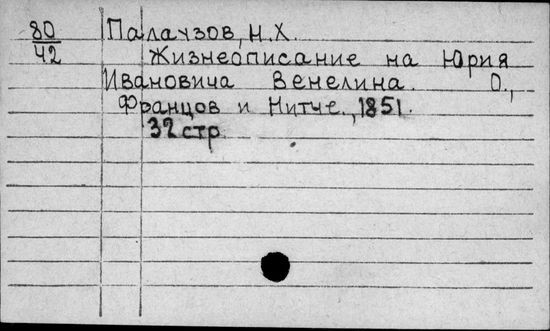 80 Палаузов, Н.Х.
42 Жизнеописание на Юрия
Ивановича Венелина. О.,
Францов и Нитче., 1851.
32 стр.